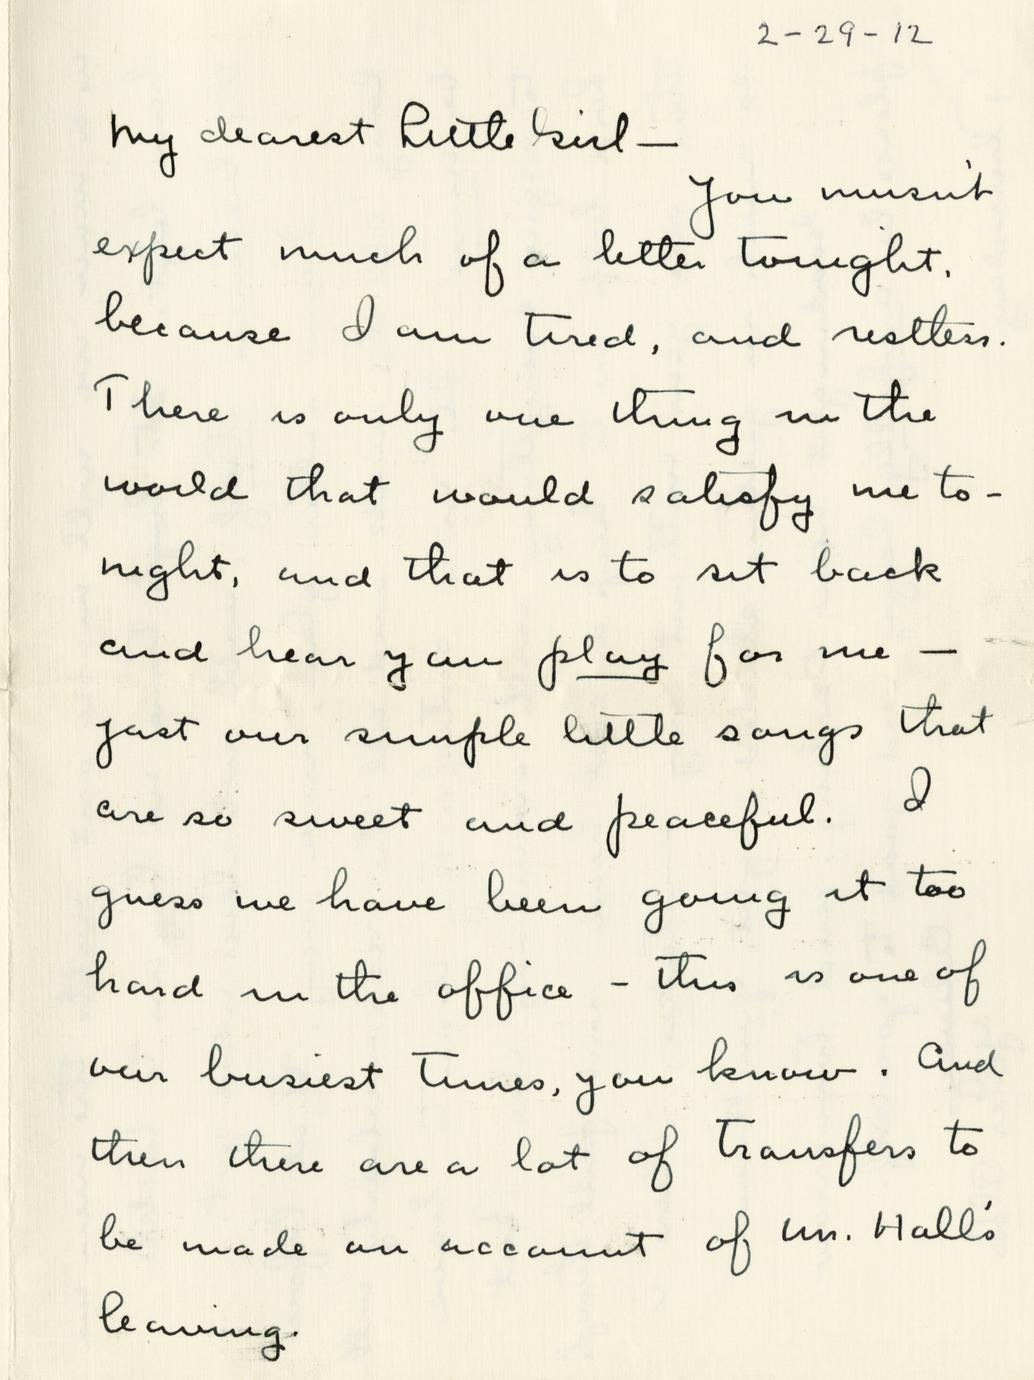 2-29-12
My dearest Little Girl —
You musn't
expect much of a letter tonight,
because I am tired, and restless.
There is only one thing in the
world that would satisfy me to-
night, and that is to sit back
and hear you play for me —
just our simple little songs that
are so sweet and peaceful. I
guess we have been going it too
hard in the office - this is one of
our busiest times, you know. And
then there are a lot of transfers to
be made on account of Mr. Hall's
leaving.